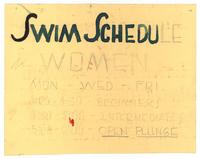 SWIM SCHEDULE
WOMEN
MON - WED - FRI
BEGINNERS
INTERMEDIATES
OPEN PLUNGE